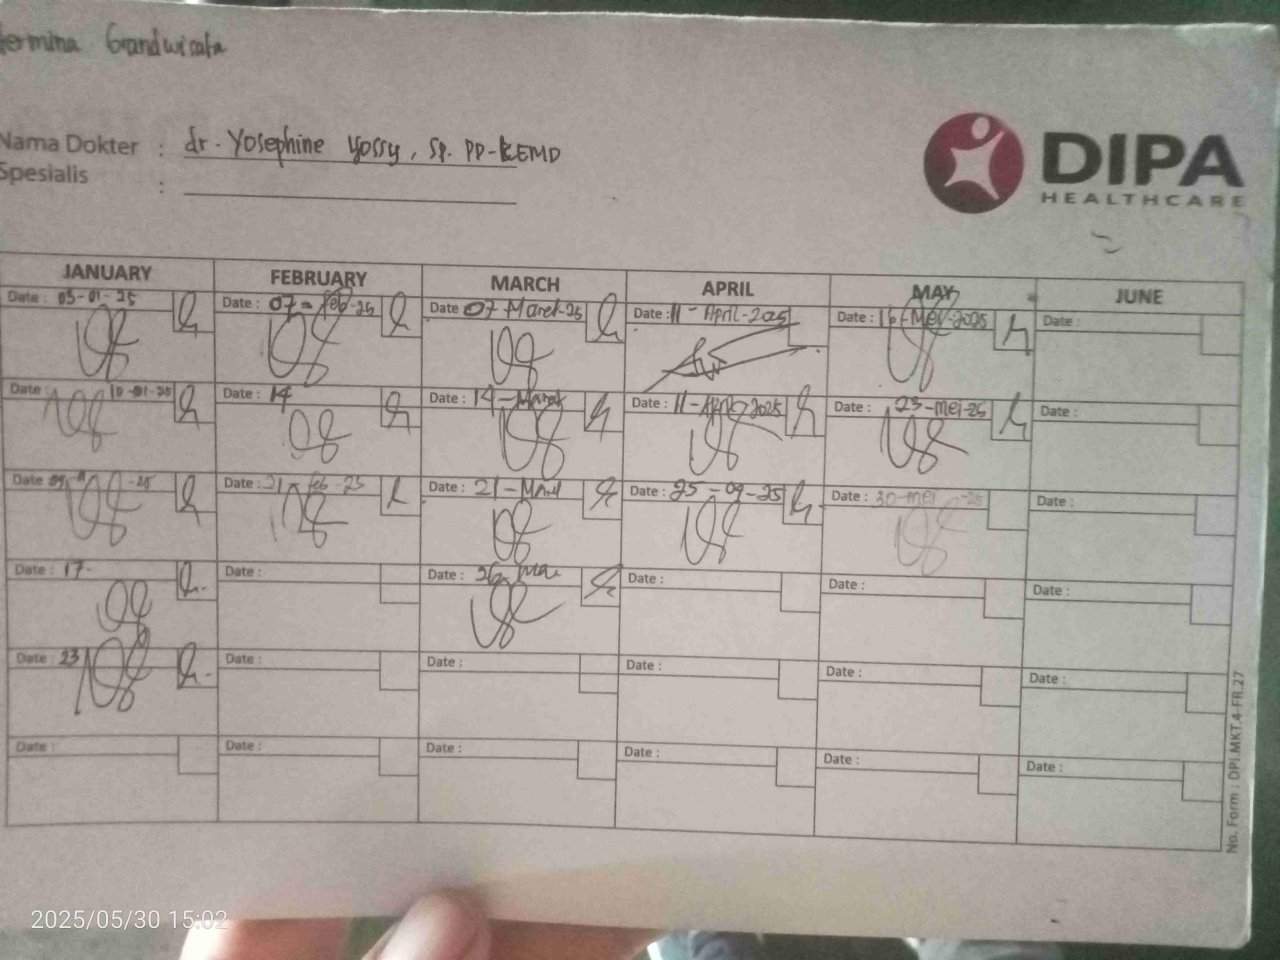 ermina Grandwisata
Nama Dokter : dr. Yosephine Yossy, Sp. PD-KEMD
Spesialis :
DIPA
HEALTHCARE
JANUARY FEBRUARY MARCH APRIL MAY JUNE
Date : 03-01-25 Date : 07 - Feb-25 Date 07 Maret-25 Date : 11 - April-2025 Date : 16-Mei-2025 Date :
Date : 10-01-25 Date : 14 Date : 14-Maret Date : 11-April-2025 Date : 23-Mei-25 Date :
Date -25 Date : 21-Feb-25 Date : 21-Maret Date : 25-04-25 Date : 30-Mei-25 Date :
Date : 17- Date : Date : 26 Mar Date : Date : Date :
Date : 23 Date : Date : Date : Date : Date :
Date : Date : Date : Date : Date : Date :
No. Form : DPI.MKT.4-FR.27
2025/05/30 15:02